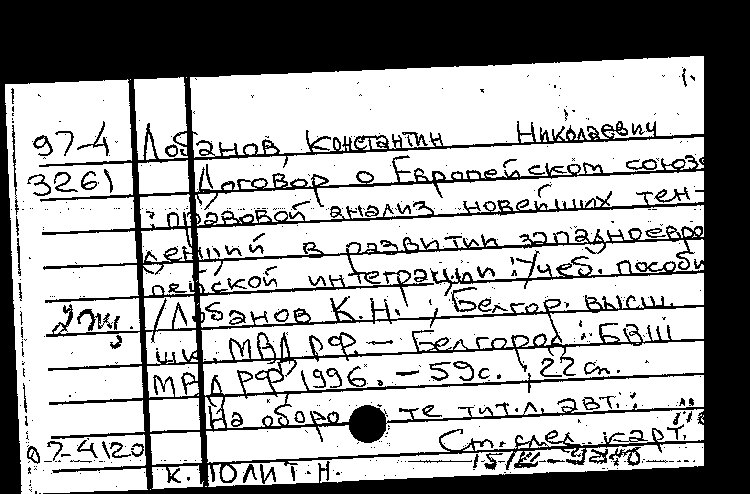 1.
97-4 Лобанов, Константин Николаевич
3261 Договор о Европейском союзе
: правовой анализ новейших тен-
денций в развитии западноевро
пейской интеграции : Учеб. пособи
2 экз. / Лобанов К.Н. ; Белгор. высш.
шк. МВД РФ. — Белгород : БВШ
МВД РФ, 1996. — 59с. ; 22 см.
На оборо те тит.л. авт.:
02-4120 См. след. карт.
к. полит.н.